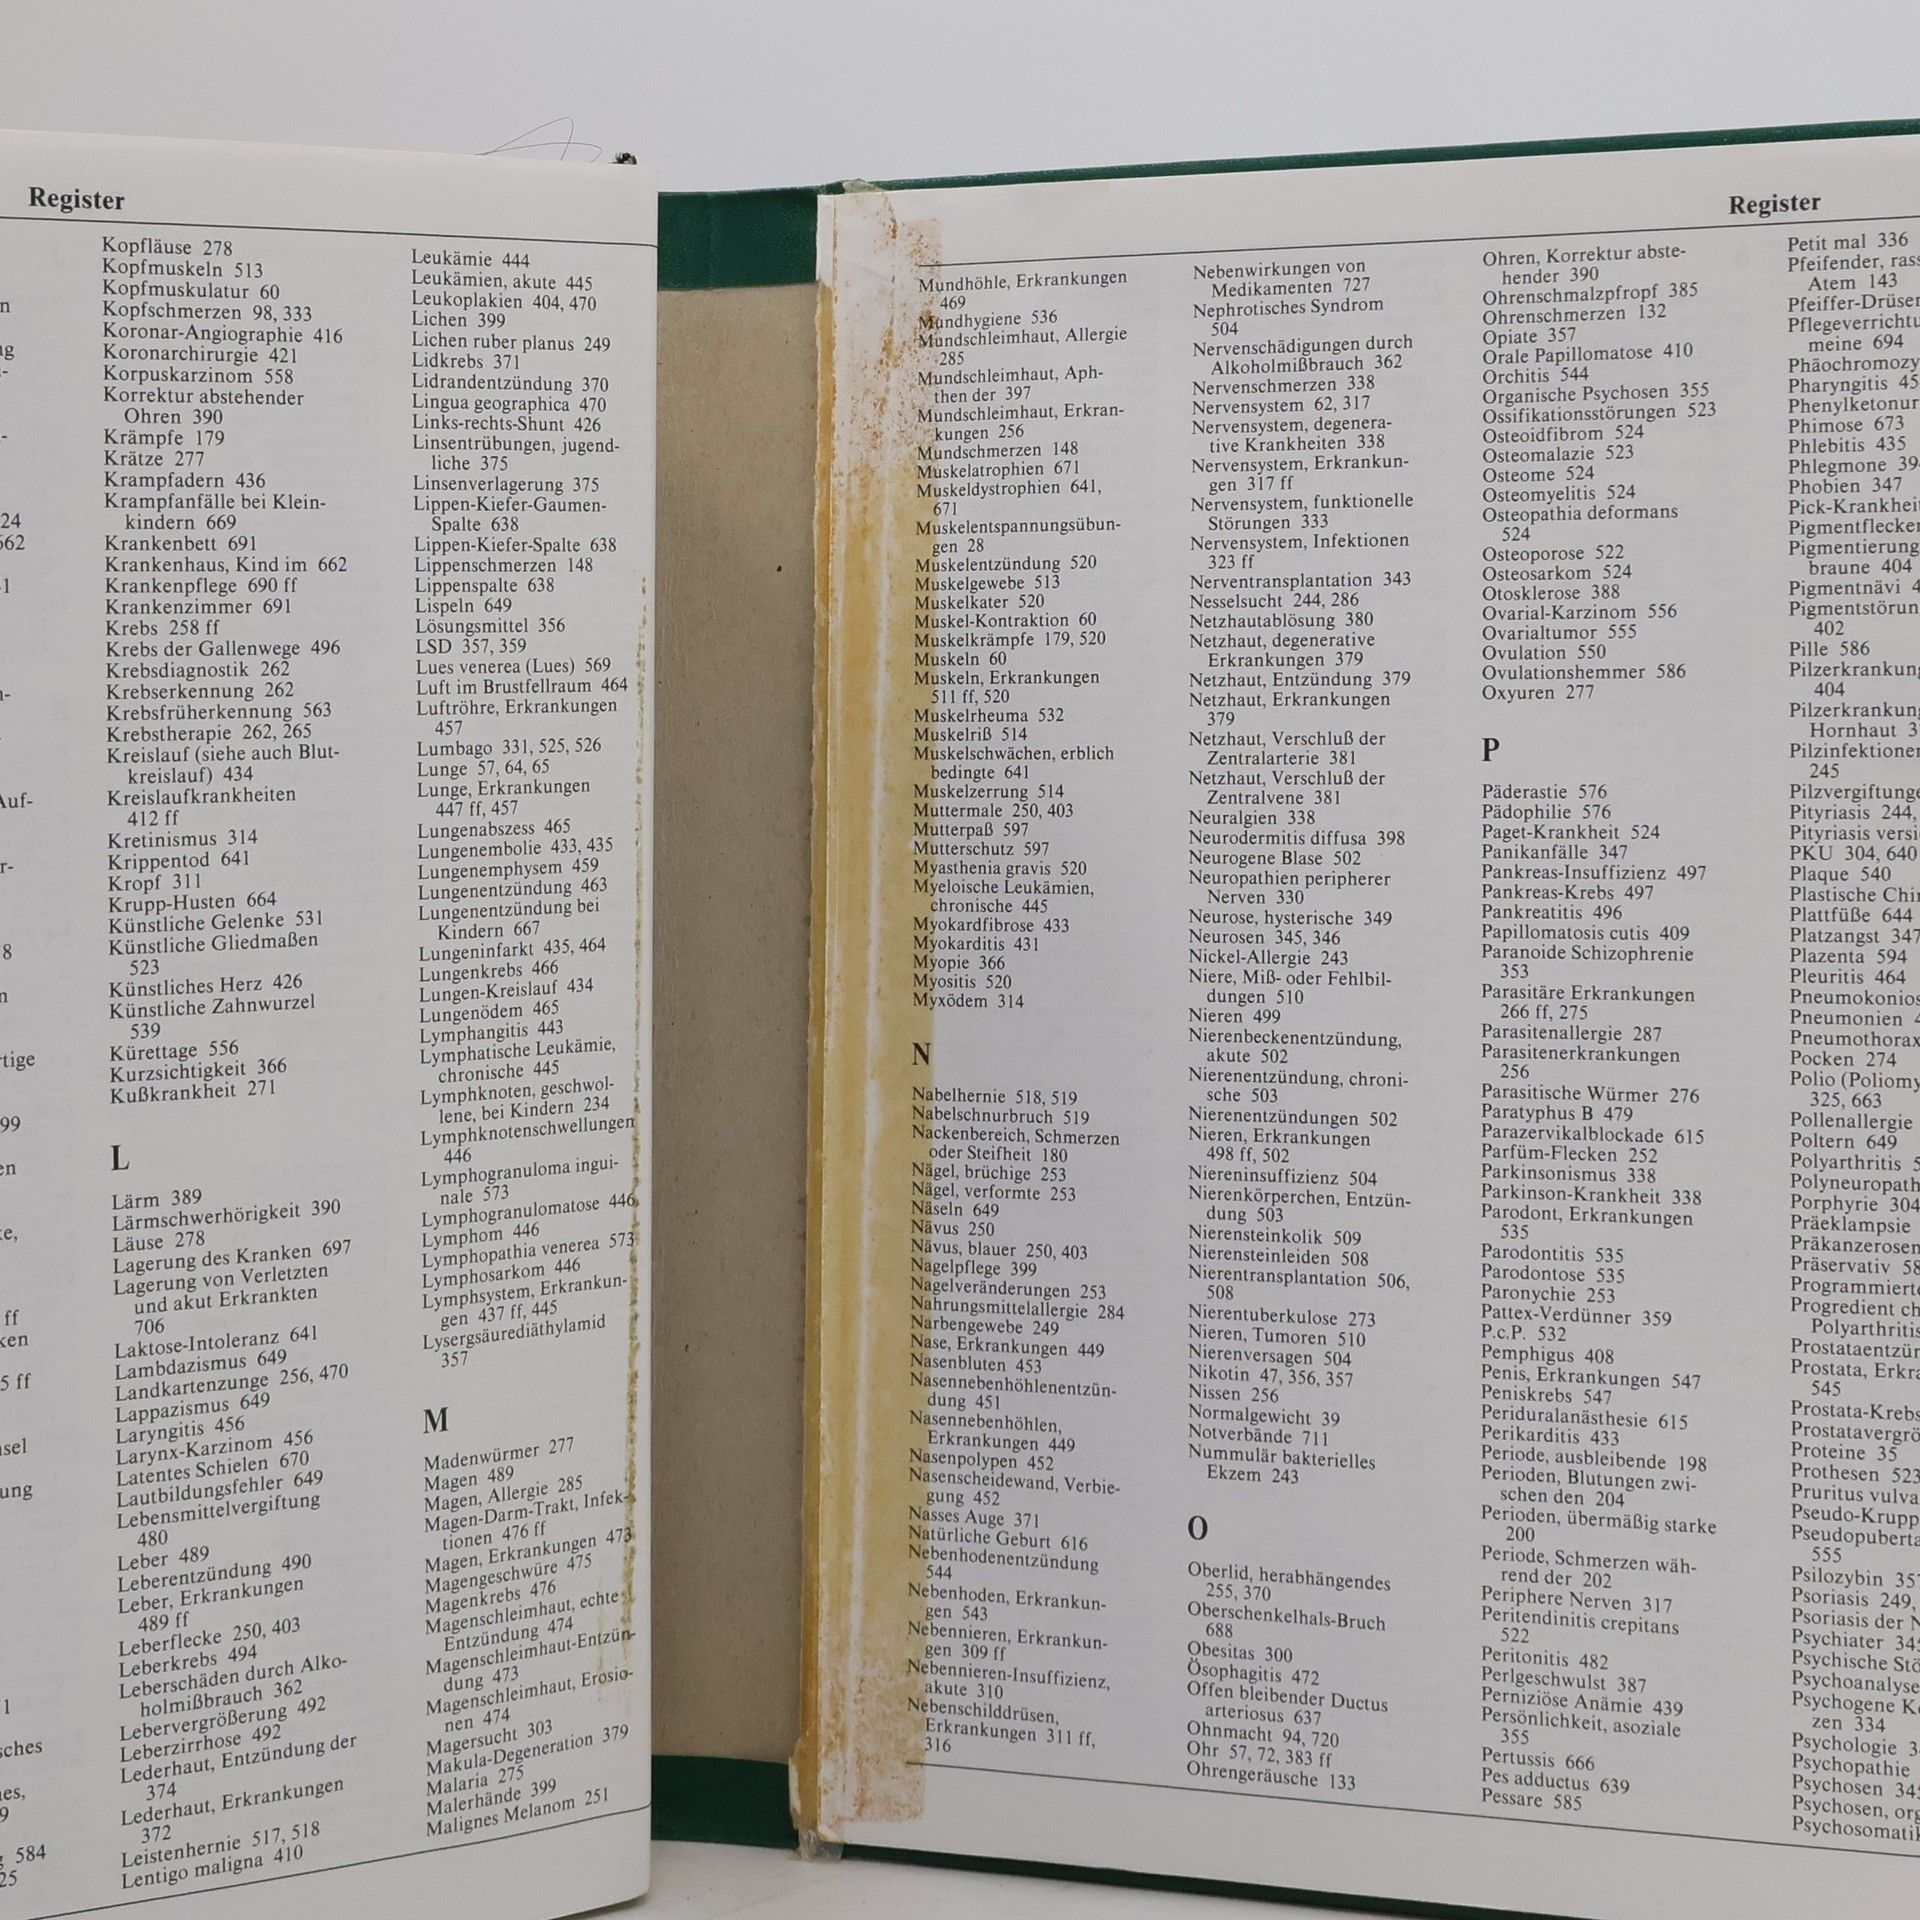 Register
Kopfläuse 278
Kopfmuskeln 513
Kopfmuskulatur 60
Kopfschmerzen 98, 333
Koronar-Angiographie 416
Koronarchirurgie 421
Korpuskarzinom 558
Korrektur abstehender
Ohren 390
Krämpfe 179
Krätze 277
Krampfadern 436
Krampfanfälle bei Klein-
kindern 669
Krankenbett 691
Krankenhaus, Kind im 662
Krankenpflege 690 ff
Krankenzimmer 691
Krebs 258 ff
Krebs der Gallenwege 496
Krebsdiagnostik 262
Krebserkennung 262
Krebsfrüherkennung 563
Krebstherapie 262, 265
Kreislauf (siehe auch Blut-
kreislauf) 434
Kreislaufkrankheiten
412 ff
Kretinismus 314
Krippentod 641
Kropf 311
Krupp-Husten 664
Künstliche Gelenke 531
Künstliche Gliedmaßen
523
Künstliches Herz 426
Künstliche Zahnwurzel
539
Kürettage 556
Kurzsichtigkeit 366
Kußkrankheit 271
L
Lärm 389
Lärmschwerhörigkeit 390
Läuse 278
Lagerung des Kranken 697
Lagerung von Verletzten
und akut Erkrankten
706
Laktose-Intoleranz 641
Lambdazismus 649
Landkartenzunge 256, 470
Lappazismus 649
Laryngitis 456
Larynx-Karzinom 456
Latentes Schielen 670
Lautbildungsfehler 649
Lebensmittelvergiftung
480
Leber 489
Leberentzündung 490
Leber, Erkrankungen
489 ff
Leberflecke 250, 403
Leberkrebs 494
Leberschäden durch Alko-
holmißbrauch 362
Lebervergrößerung 492
Leberzirrhose 492
Lederhaut, Entzündung der
374
Lederhaut, Erkrankungen
372
Leistenhernie 517, 518
Lentigo maligna 410
Leukämie 444
Leukämien, akute 445
Leukoplakien 404, 470
Lichen 399
Lichen ruber planus 249
Lidkrebs 371
Lidrandentzündung 370
Lingua geographica 470
Links-rechts-Shunt 426
Linsentrübungen, jugend-
liche 375
Linsenverlagerung 375
Lippen-Kiefer-Gaumen-
Spalte 638
Lippen-Kiefer-Spalte 638
Lippenschmerzen 148
Lippenspalte 638
Lispeln 649
Lösungsmittel 356
LSD 357, 359
Lues venerea (Lues) 569
Luft im Brustfellraum 464
Luftröhre, Erkrankungen
457
Lumbago 331, 525, 526
Lunge 57, 64, 65
Lunge, Erkrankungen
447 ff, 457
Lungenabszess 465
Lungenembolie 433, 435
Lungenemphysem 459
Lungenentzündung 463
Lungenentzündung bei
Kindern 667
Lungeninfarkt 435, 464
Lungenkrebs 466
Lungen-Kreislauf 434
Lungenödem 465
Lymphangitis 443
Lymphatische Leukämie,
chronische 445
Lymphknoten, geschwol-
lene, bei Kindern 234
Lymphknotenschwellungen
446
Lymphogranuloma ingui-
nale 573
Lymphogranulomatose 446
Lymphom 446
Lymphopathia venerea 573
Lymphosarkom 446
Lymphsystem, Erkrankun-
gen 437 ff, 445
Lysergsäurediäthylamid
357
M
Madenwürmer 277
Magen 489
Magen, Allergie 285
Magen-Darm-Trakt, Infek-
tionen 476 ff
Magen, Erkrankungen 473
Magengeschwüre 475
Magenkrebs 476
Magenschleimhaut, echte
Entzündung 474
Magenschleimhaut-Entzün-
dung 473
Magenschleimhaut, Erosio-
nen 474
Magersucht 303
Makula-Degeneration 379
Malaria 275
Malerhände 399
Malignes Melanom 251
Register
Mundhöhle, Erkrankungen
469
Mundhygiene 536
Mundschleimhaut, Allergie
285
Mundschleimhaut, Aph-
then der 397
Mundschleimhaut, Erkran-
kungen 256
Mundschmerzen 148
Muskelatrophien 671
Muskeldystrophien 641,
671
Muskelentspannungsübun-
gen 28
Muskelentzündung 520
Muskelgewebe 513
Muskelkater 520
Muskel-Kontraktion 60
Muskelkrämpfe 179, 520
Muskeln 60
Muskeln, Erkrankungen
511 ff, 520
Muskelrheuma 532
Muskelriß 514
Muskelschwächen, erblich
bedingte 641
Muskelzerrung 514
Muttermale 250, 403
Mutterpaß 597
Mutterschutz 597
Myasthenia gravis 520
Myeloische Leukämien,
chronische 445
Myokardfibrose 433
Myokarditis 431
Myopie 366
Myositis 520
Myxödem 314
N
Nabelhernie 518, 519
Nabelschnurbruch 519
Nackenbereich, Schmerzen
oder Steifheit 180
Nägel, brüchige 253
Nägel, verformte 253
Näseln 649
Nävus 250
Nävus, blauer 250, 403
Nagelpflege 399
Nagelveränderungen 253
Nahrungsmittelallergie 284
Narbengewebe 249
Nase, Erkrankungen 449
Nasenbluten 453
Nasennebenhöhlenentzün-
dung 451
Nasennebenhöhlen,
Erkrankungen 449
Nasenpolypen 452
Nasenscheidewand, Verbie-
gung 452
Nasses Auge 371
Natürliche Geburt 616
Nebenhodenentzündung
544
Nebenhoden, Erkrankun-
gen 543
Nebennieren, Erkrankun-
gen 309 ff
Nebennieren-Insuffizienz,
akute 310
Nebenschilddrüsen,
Erkrankungen 311 ff,
316
Nebenwirkungen von
Medikamenten 727
Nephrotisches Syndrom
504
Nervenschädigungen durch
Alkoholmißbrauch 362
Nervenschmerzen 338
Nervensystem 62, 317
Nervensystem, degenera-
tive Krankheiten 338
Nervensystem, Erkrankun-
gen 317 ff
Nervensystem, funktionelle
Störungen 333
Nervensystem, Infektionen
323 ff
Nerventransplantation 343
Nesselsucht 244, 286
Netzhautablösung 380
Netzhaut, degenerative
Erkrankungen 379
Netzhaut, Entzündung 379
Netzhaut, Erkrankungen
379
Netzhaut, Verschluß der
Zentralarterie 381
Netzhaut, Verschluß der
Zentralvene 381
Neuralgien 338
Neurodermitis diffusa 398
Neurogene Blase 502
Neuropathien peripherer
Nerven 330
Neurose, hysterische 349
Neurosen 345, 346
Nickel-Allergie 243
Niere, Miß- oder Fehlbil-
dungen 510
Nieren 499
Nierenbeckenentzündung,
akute 502
Nierenentzündung, chroni-
sche 503
Nierenentzündungen 502
Nieren, Erkrankungen
498 ff, 502
Niereninsuffizienz 504
Nierenkörperchen, Entzün-
dung 503
Nierensteinkolik 509
Nierensteinleiden 508
Nierentransplantation 506,
508
Nierentuberkulose 273
Nieren, Tumoren 510
Nierenversagen 504
Nikotin 47, 356, 357
Nissen 256
Normalgewicht 39
Notverbände 711
Nummulär bakterielles
Ekzem 243
O
Oberlid, herabhängendes
255, 370
Oberschenkelhals-Bruch
688
Obesitas 300
Ösophagitis 472
Offen bleibender Ductus
arteriosus 637
Ohnmacht 94, 720
Ohr 57, 72, 383 ff
Ohrengeräusche 133
Ohren, Korrektur abste-
hender 390
Ohrenschmalzpfropf 385
Ohrenschmerzen 132
Opiate 357
Orale Papillomatose 410
Orchitis 544
Organische Psychosen 355
Ossifikationsstörungen 523
Osteoidfibrom 524
Osteomalazie 523
Osteome 524
Osteomyelitis 524
Osteopathia deformans
524
Osteoporose 522
Osteosarkom 524
Otosklerose 388
Ovarial-Karzinom 556
Ovarialtumor 555
Ovulation 550
Ovulationshemmer 586
Oxyuren 277
P
Päderastie 576
Pädophilie 576
Paget-Krankheit 524
Panikanfälle 347
Pankreas-Insuffizienz 497
Pankreas-Krebs 497
Pankreatitis 496
Papillomatosis cutis 409
Paranoide Schizophrenie
353
Parasitäre Erkrankungen
266 ff, 275
Parasitenallergie 287
Parasitenerkrankungen
256
Parasitische Würmer 276
Paratyphus B 479
Parazervikalblockade 615
Parfüm-Flecken 252
Parkinsonismus 338
Parkinson-Krankheit 338
Parodont, Erkrankungen
535
Parodontitis 535
Parodontose 535
Paronychie 253
Pattex-Verdünner 359
P.c.P. 532
Pemphigus 408
Penis, Erkrankungen 547
Peniskrebs 547
Periduralanästhesie 615
Perikarditis 433
Periode, ausbleibende 198
Perioden, Blutungen zwi-
schen den 204
Perioden, übermäßig starke
200
Periode, Schmerzen wäh-
rend der 202
Periphere Nerven 317
Peritendinitis crepitans
522
Peritonitis 482
Perlgeschwulst 387
Perniziöse Anämie 439
Persönlichkeit, asoziale
355
Pertussis 666
Pes adductus 639
Pessare 585
Petit mal 336
Pfeifender, rass
Atem 143
Pfeiffer-Drüsen
Pflegeverrichtu
meine 694
Phäochromozy
Pharyngitis 45
Phenylketonur
Phimose 673
Phlebitis 435
Phlegmone 39
Phobien 347
Pick-Krankheit
Pigmentflecken
Pigmentierung
braune 404
Pigmentnävi 4
Pigmentstörun
402
Pille 586
Pilzerkrankung
404
Pilzerkrankung
Hornhaut 3
Pilzinfektionen
245
Pilzvergiftunge
Pityriasis 244,
Pityriasis versi
PKU 304, 640
Plaque 540
Plastische Chir
Plattfüße 644
Platzangst 347
Plazenta 594
Pleuritis 464
Pneumokonios
Pneumonien 4
Pneumothorax
Pocken 274
Polio (Poliomy
325, 663
Pollenallergie
Poltern 649
Polyarthritis 5
Polyneuropath
Porphyrie 304
Präeklampsie
Präkanzerosen
Präservativ 58
Programmierte
Progredient ch
Polyarthritis
Prostataentzün
Prostata, Erkra
545
Prostata-Krebs
Prostatavergrö
Proteine 35
Prothesen 523
Pruritus vulva
Pseudo-Krupp
Pseudopuberta
555
Psilozybin 357
Psoriasis 249,
Psoriasis der N
Psychiater 345
Psychische Stö
Psychoanalyse
Psychogene Ko
zen 334
Psychologie 3
Psychopathie
Psychosen 345
Psychosen, org
Psychosomatik